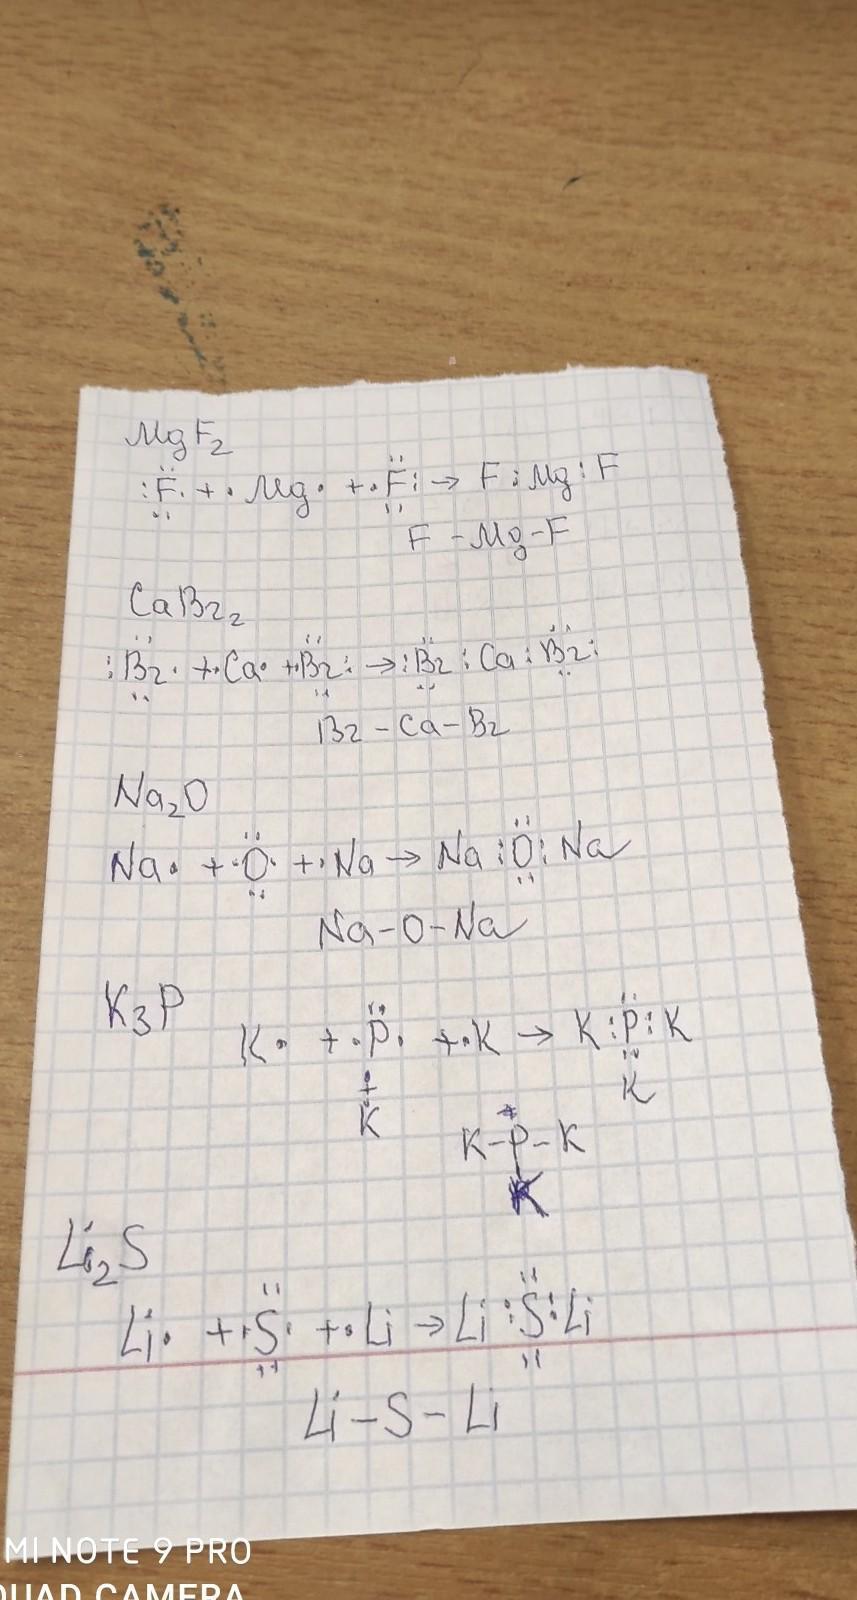 MgF₂
:F· + ·Mg· + ·F: → F:Mg:F
F - Mg - F
CaBr₂
:Br· + ·Ca· + ·Br: → :Br:Ca:Br:
Br - Ca - Br
Na₂O
Na· + ·O· + ·Na → Na:O:Na
Na - O - Na
K₃P
K· + ·P· + ·K → K:P:K
+
K
K
K - P - K
K
Li₂S
Li· + ·S· + ·Li → Li:S:Li
Li - S - Li
MI NOTE 9 PRO
QUAD CAMERA